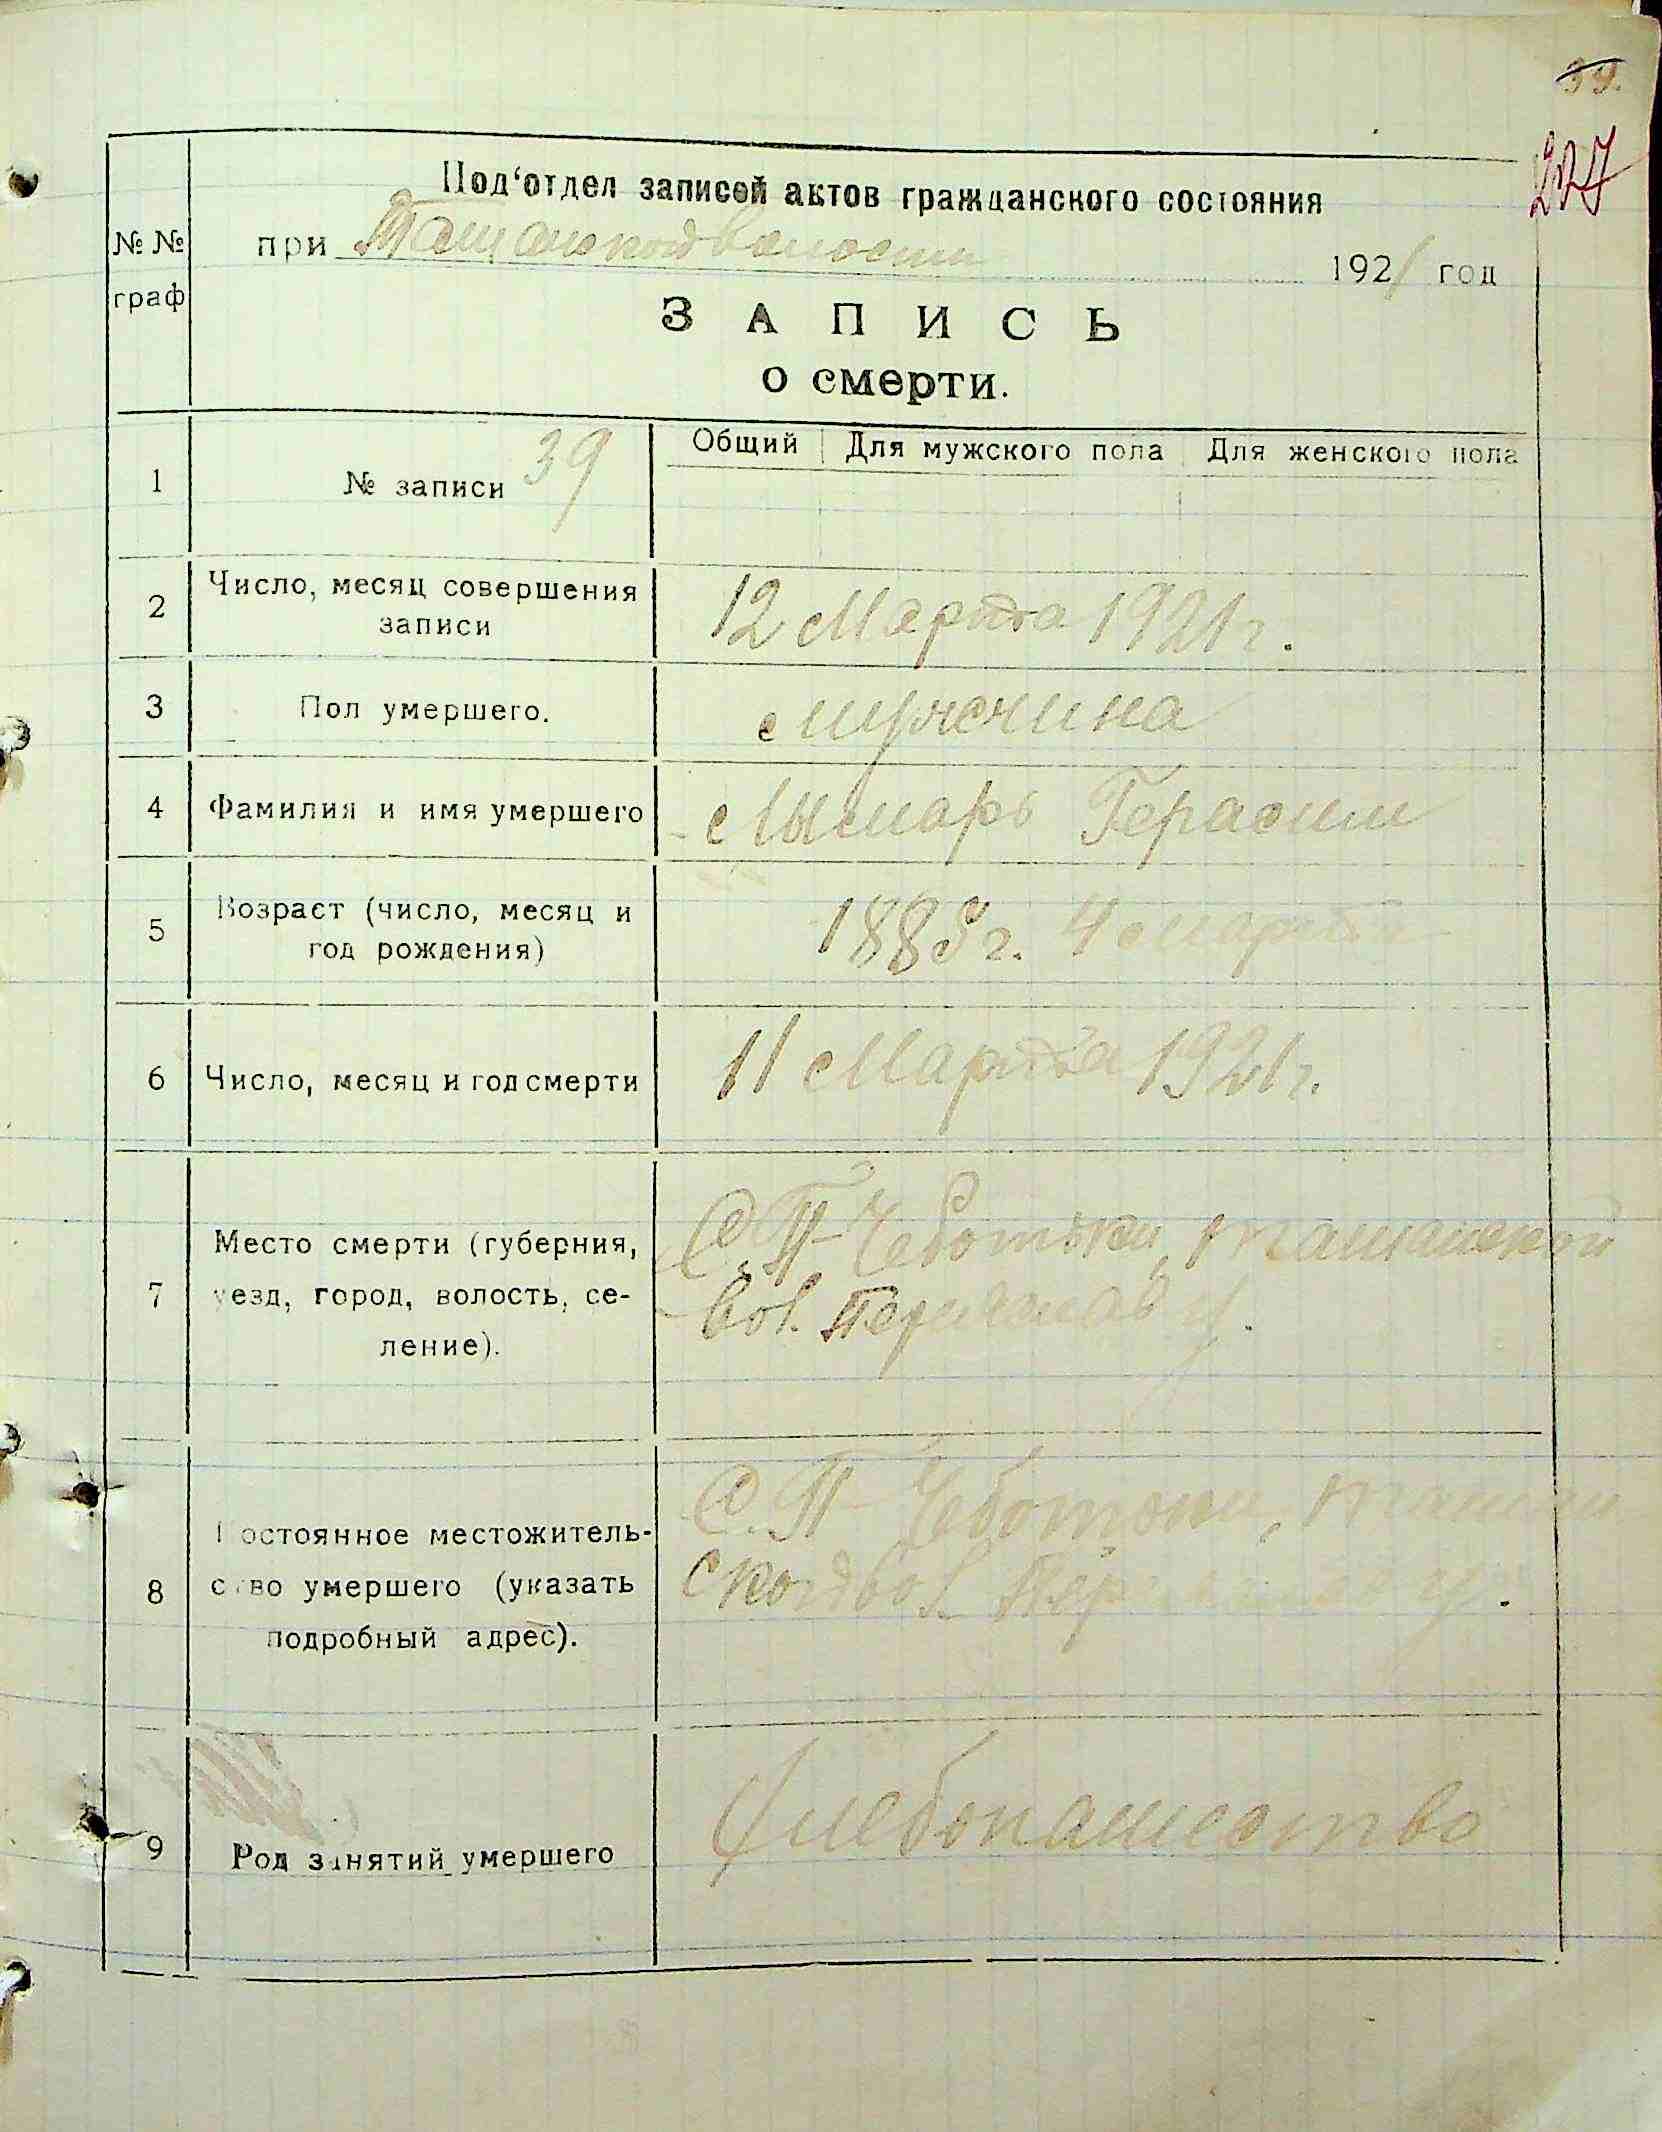 39.
227
Под‘отдел записей актов гражданского состояния
№ № граф
при Ташанской волости 1921 год
ЗАПИСЬ
о смерти.
Общий Для мужского пола Для женского пола
1 № записи 39
2 Число, месяц совершения
записи
12 Марта 1921 г.
3 Пол умершего. Мужчина
4 Фамилия и имя умершего Лымарь Герасим
5 Возраст (число, месяц и
год рождения)
г. 4 марта
6 Число, месяц и год смерти 11 Марта 1921 г.
7 Место смерти (губерния,
уезд, город, волость, се-
ление).
С. П- Чоботьки, Ташанской
вол. Переяслав у.
8 Постоянное местожитель-
ство умершего (указать
подробный адрес).
С. П- Чоботьки, Ташан
ской вол. Переяслав у.
9 Род занятий умершего Хлебопашество